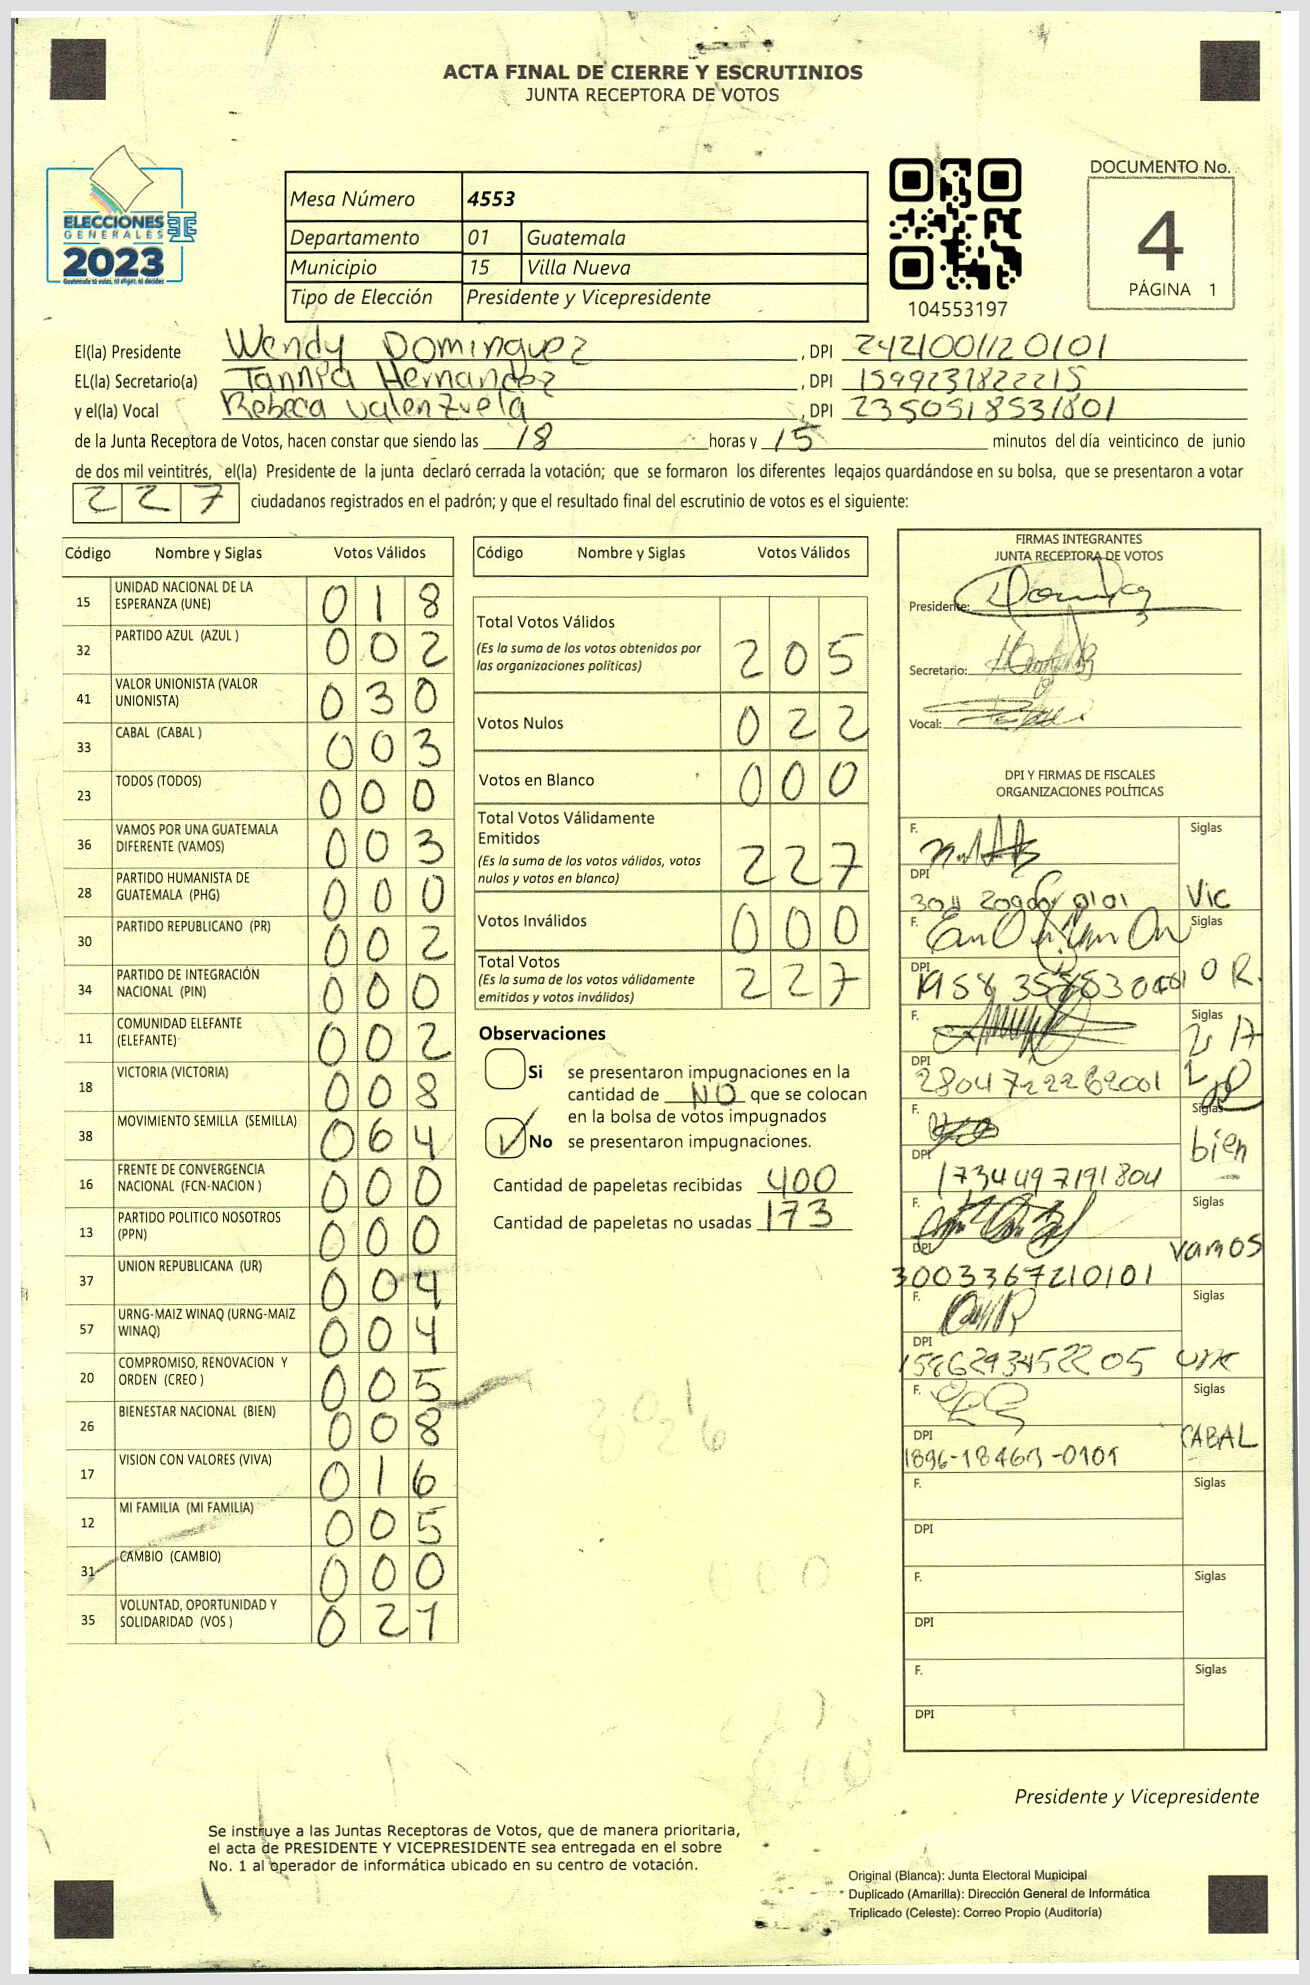 ACTA FINAL DE CIERRE Y ESCRUTINIOS
JUNTA RECEPTORA DE VOTOS
ELECCIONES
GENERALES
2023
Guatemala tú votas, tú eliges, tú decides
Mesa Número 4553
Departamento 01 Guatemala
Municipio 15 Villa Nueva
Tipo de Elección Presidente y Vicepresidente
104553197
DOCUMENTO No.
4
PÁGINA 1
El(la) Presidente Wendy Dominguez , DPI 2421001120101
EL(la) Secretario(a) Tannia Hernandez , DPI 1599237822215
y el(la) Vocal Rebeca Valenzuela , DPI 2350518531801
de la Junta Receptora de Votos, hacen constar que siendo las 18 horas y 15 minutos del día veinticinco de junio
de dos mil veintitrés, el(la) Presidente de la junta declaró cerrada la votación; que se formaron los diferentes legajos guardándose en su bolsa, que se presentaron a votar
227 ciudadanos registrados en el padrón; y que el resultado final del escrutinio de votos es el siguiente:
Código Nombre y Siglas Votos Válidos
15 UNIDAD NACIONAL DE LA ESPERANZA (UNE) 018
32 PARTIDO AZUL (AZUL ) 002
41 VALOR UNIONISTA (VALOR UNIONISTA) 030
33 CABAL (CABAL ) 003
23 TODOS (TODOS) 000
36 VAMOS POR UNA GUATEMALA DIFERENTE (VAMOS) 003
28 PARTIDO HUMANISTA DE GUATEMALA (PHG) 000
30 PARTIDO REPUBLICANO (PR) 002
34 PARTIDO DE INTEGRACIÓN NACIONAL (PIN) 000
11 COMUNIDAD ELEFANTE (ELEFANTE) 002
18 VICTORIA (VICTORIA) 008
38 MOVIMIENTO SEMILLA (SEMILLA) 064
16 FRENTE DE CONVERGENCIA NACIONAL (FCN-NACION ) 000
13 PARTIDO POLITICO NOSOTROS (PPN) 000
37 UNION REPUBLICANA (UR) 004
57 URNG-MAIZ WINAQ (URNG-MAIZ WINAQ) 004
20 COMPROMISO, RENOVACION Y ORDEN (CREO ) 005
26 BIENESTAR NACIONAL (BIEN) 008
17 VISION CON VALORES (VIVA) 016
12 MI FAMILIA (MI FAMILIA) 005
31 CAMBIO (CAMBIO) 000
35 VOLUNTAD, OPORTUNIDAD Y SOLIDARIDAD (VOS ) 021
Código Nombre y Siglas Votos Válidos
Total Votos Válidos 205
(Es la suma de los votos obtenidos por
las organizaciones políticas)
Votos Nulos 022
Votos en Blanco 000
Total Votos Válidamente
Emitidos 227
(Es la suma de los votos válidos, votos
nulos y votos en blanco)
Votos Inválidos 000
Total Votos 227
(Es la suma de los votos válidamente
emitidos y votos inválidos)
Observaciones
Si se presentaron impugnaciones en la
cantidad de NO que se colocan
en la bolsa de votos impugnados
No se presentaron impugnaciones.
Cantidad de papeletas recibidas 400
Cantidad de papeletas no usadas 173
FIRMAS INTEGRANTES
JUNTA RECEPTORA DE VOTOS
Presidente:
Secretario:
Vocal:
DPI Y FIRMAS DE FISCALES
ORGANIZACIONES POLÍTICAS
F. Siglas
DPI Vic
F. Siglas
DPI O R.
F. Siglas
DPI 2804722262001
F. Siglas
DPI 1734497191804 bien
F. Siglas
DPI 3003367210101 vamos
F. Siglas
DPI 1586293452205
F. Siglas
DPI CABAL
F. Siglas
DPI
F. Siglas
DPI
F. Siglas
DPI
Presidente y Vicepresidente
Se instruye a las Juntas Receptoras de Votos, que de manera prioritaria,
el acta de PRESIDENTE Y VICEPRESIDENTE sea entregada en el sobre
No. 1 al operador de informática ubicado en su centro de votación.
Original (Blanca): Junta Electoral Municipal
Duplicado (Amarilla): Dirección General de Informática
Triplicado (Celeste): Correo Propio (Auditoría)